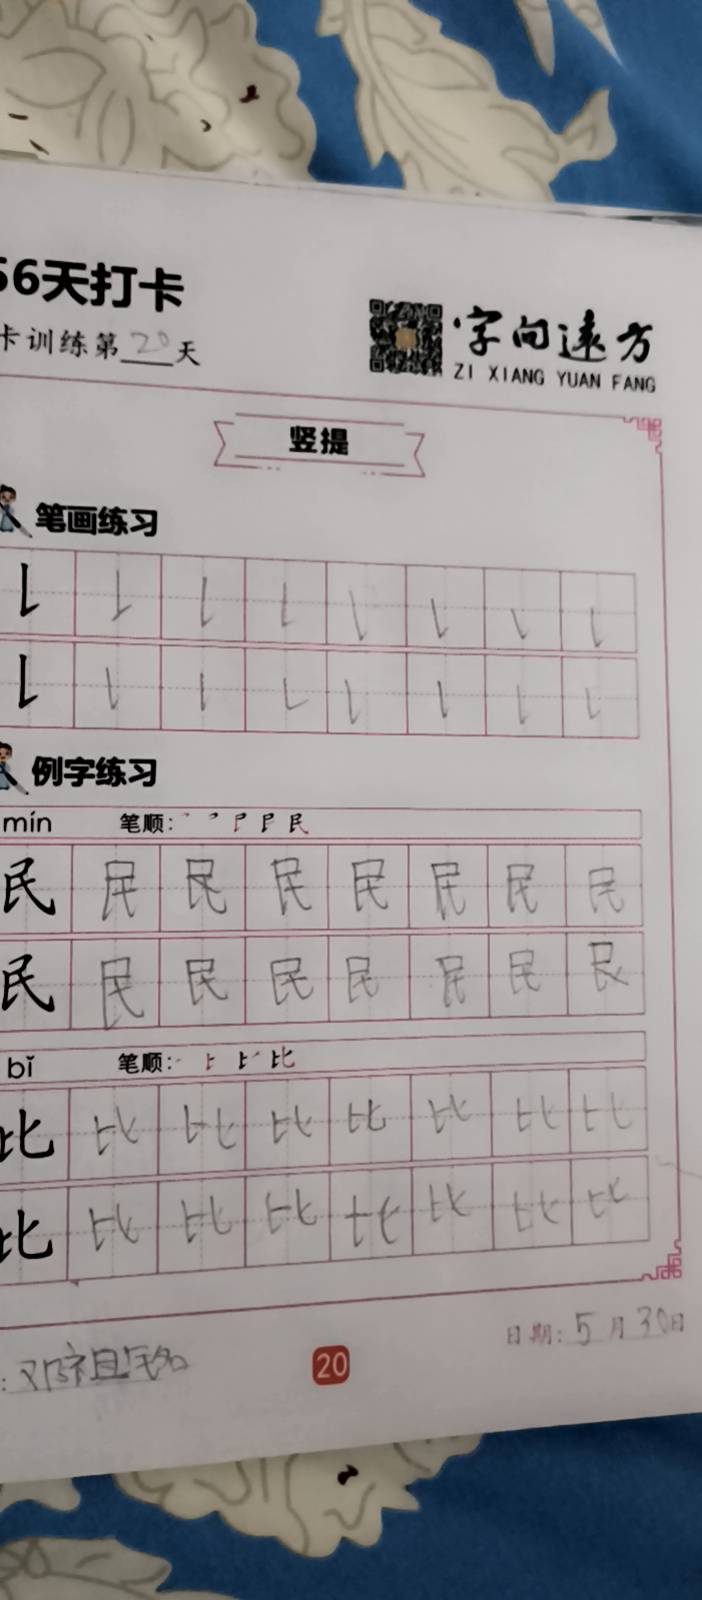 56天打卡
卡训练第20天
字向远方
ZI XIANG YUAN FANG
竖提
笔画练习
例字练习
mín 笔顺:
民 民 民 民 民 民 民 民
民 民 民 民 民 民 民 民
bǐ 笔顺:
比 比 比 比 比 比 比 比
比 比 比 比 比 比 比 比
: 邓祖铭
20
日期: 5月30日